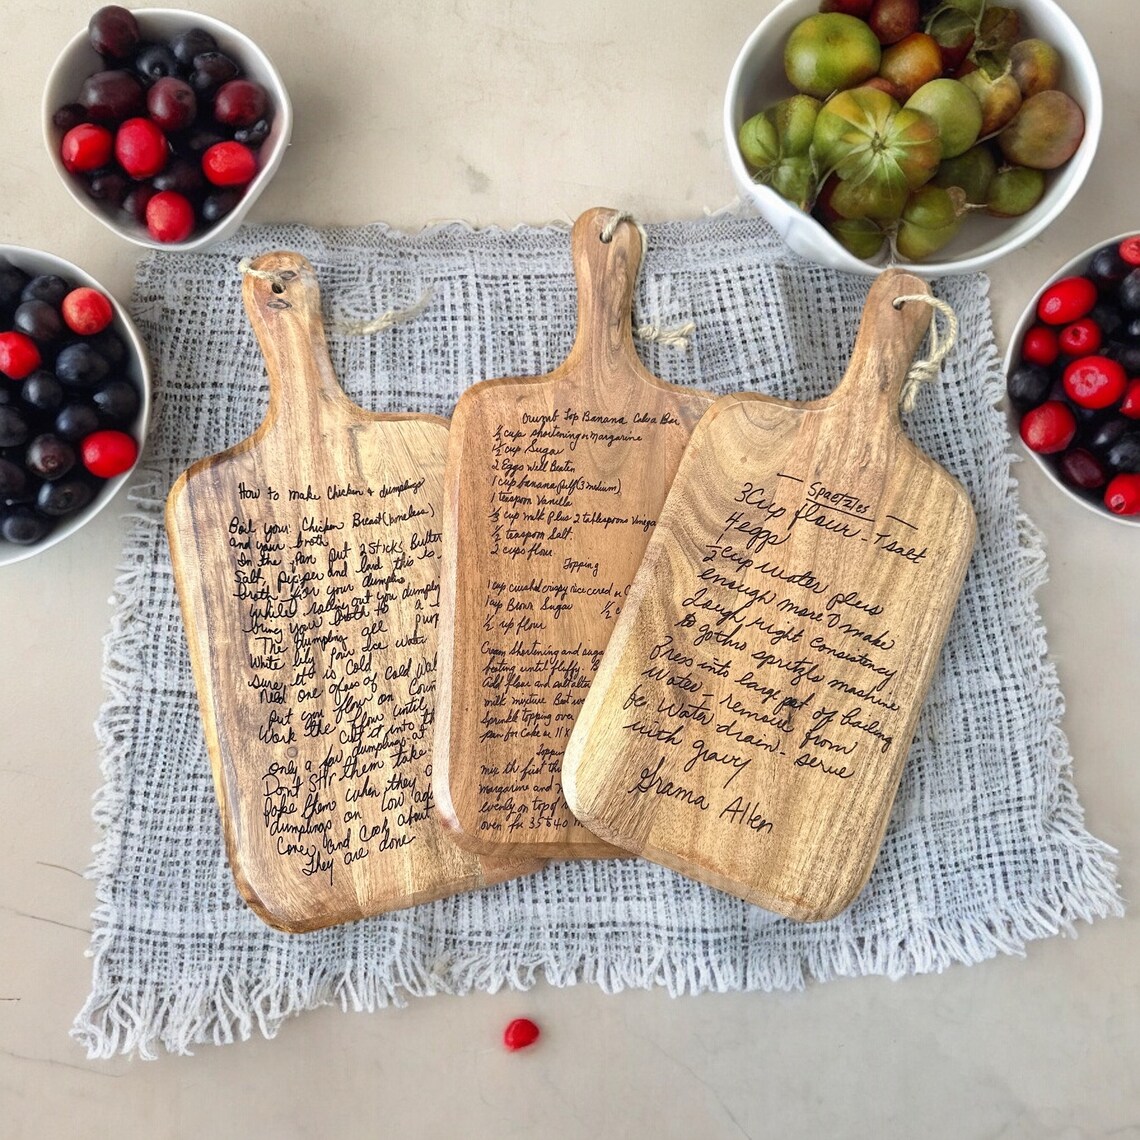 How to make Chicken & dumplings
Boil your: Chicken Breast (boneless)
and your broth
In the Pan put 2 Sticks Butter
Salt, pepper and
broth for your dumplins
while rolling out you dumplin
bring you broth to a
The dumpling all purp
White lily pour ice water
sure it is cold
need one glass of cold wat
put you flour on Coun
Work the flour until
cut it into th
Only a few dumplings at
Don't stir them take
poke them when they
dumplings on low
Cover and Cook about
They are done
Crumb Top Banana Cake Bar
½ cup shortening or Margarine
1½ cup Sugar
2 Eggs Well Beaten
1 cup banana pulp (3 medium)
1 teaspoon Vanilla
⅓ cup milk plus 2 tablespoons Vinegar
½ teaspoon Salt
2 cups flour
Topping
1 cup crushed crispy rice cereal or C
1 cup Brown Sugar ½ c
½ cup flour
Cream shortening and suga
beating until fluffy.
add flour and salt alte
milk mixture Beat
Sprinkle topping over
pan for Cake or 11 X
Toppi
mix the first th
margarine and
evenly on top of
oven for 35 to 40 m
— Spaetzles —
3 Cup flour - 1 salt
4 eggs
½ cup water plus
enough more to make
dough right consistency
to go thru spritzls machine
Press into large pot of boiling
water - remove from
let water drain - serve
with gravy
Grama Allen